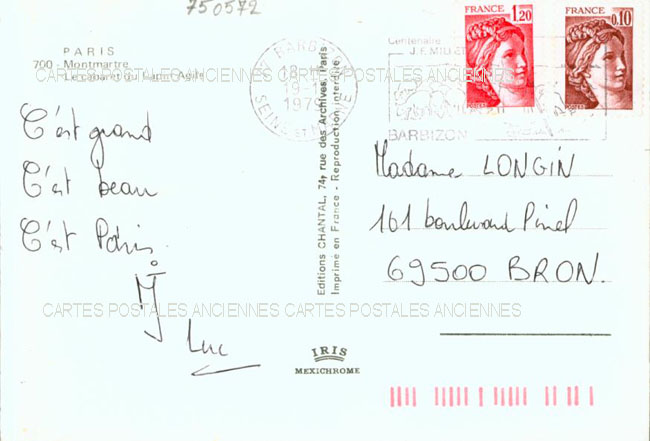 750572
PARIS
700 - Montmartre
Le cabaret du Lapin Agile
CARTES POSTALES ANCIENNES CARTES POSTALES ANCIENNES
C'est grand
C'est beau
C'est Paris.
Luc
CARTES POSTALES ANCIENNES CARTES POSTALES ANCIENNES
Editions CHANTAL, 74, rue des Archives, Paris
Imprimé en France - Reproduction interdite
IRIS
MEXICHROME
BARBIZON
18
19
SEINE ET MARNE
Centenaire
J.F. MILLET
BARBIZON
FRANCE
1,20
FRANCE
0,10
Madame LONGIN
161 boulevard Pinel
69500 BRON.